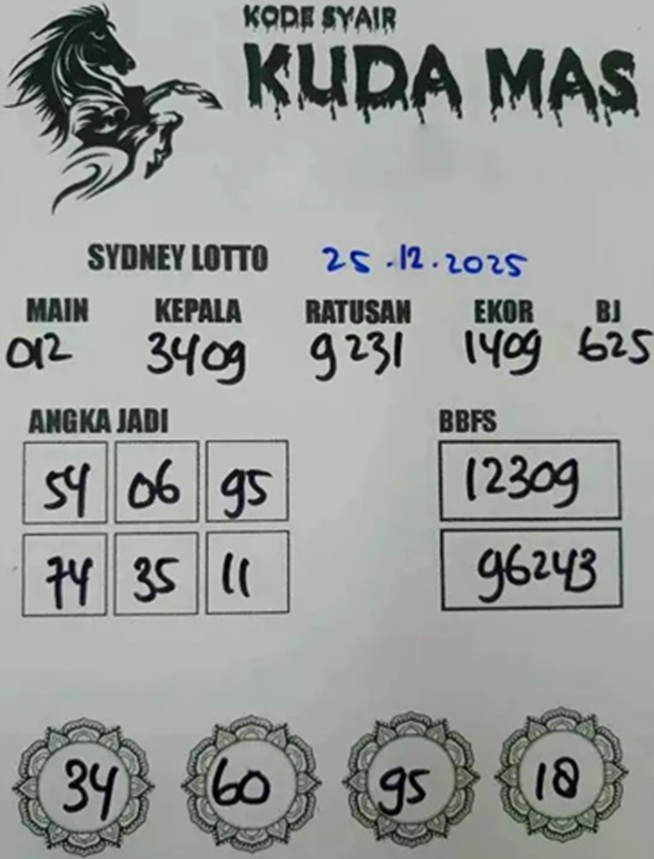 KODE SYAIR
KUDA MAS
SYDNEY LOTTO 25.12.2025
MAIN KEPALA RATUSAN EKOR BJ
012 3409 9231 1409 625
ANGKA JADI BBFS
54 06 95 12309
74 35 11 96243
34 60 95 18